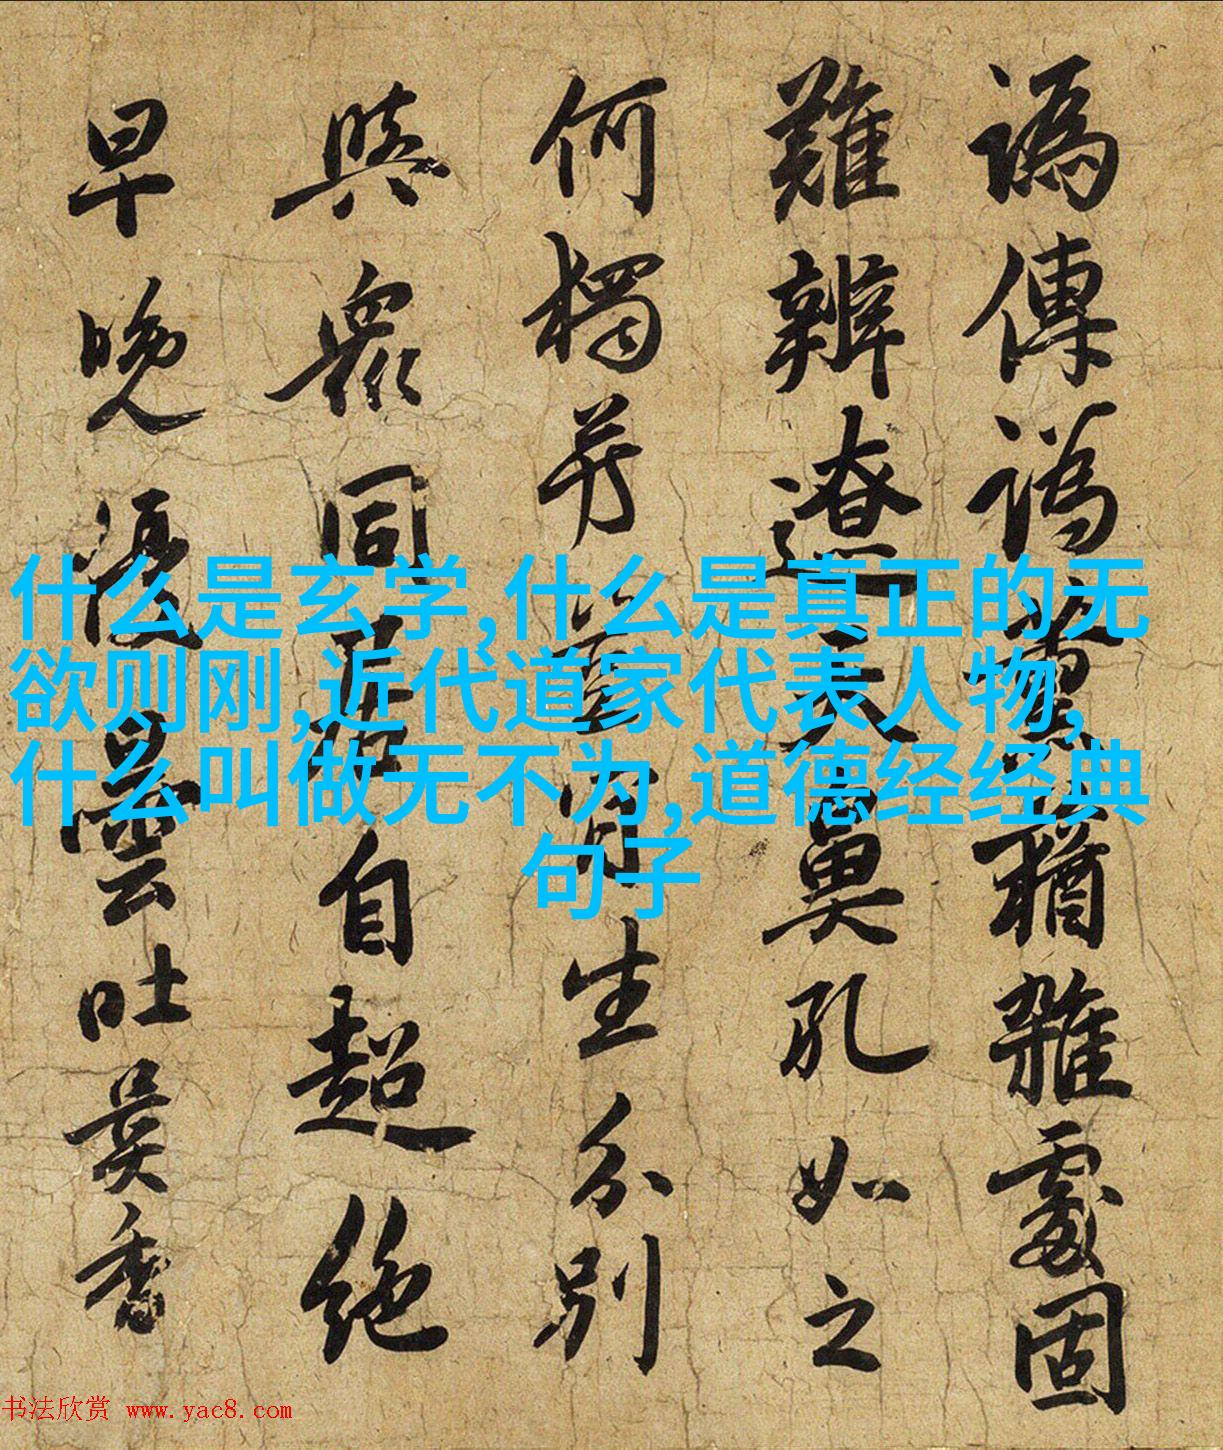 譌傳譌薰蕕雜處固
難辨遼天鼻孔如之
何獨生分別
與衆同居自超絕
早晚優曇吐異香
什么是玄学,什么是真正的无
欲则刚,近代道家代表人物,
什么叫做无不为,道德经经典
句子
书法欣赏 www.yac8.com